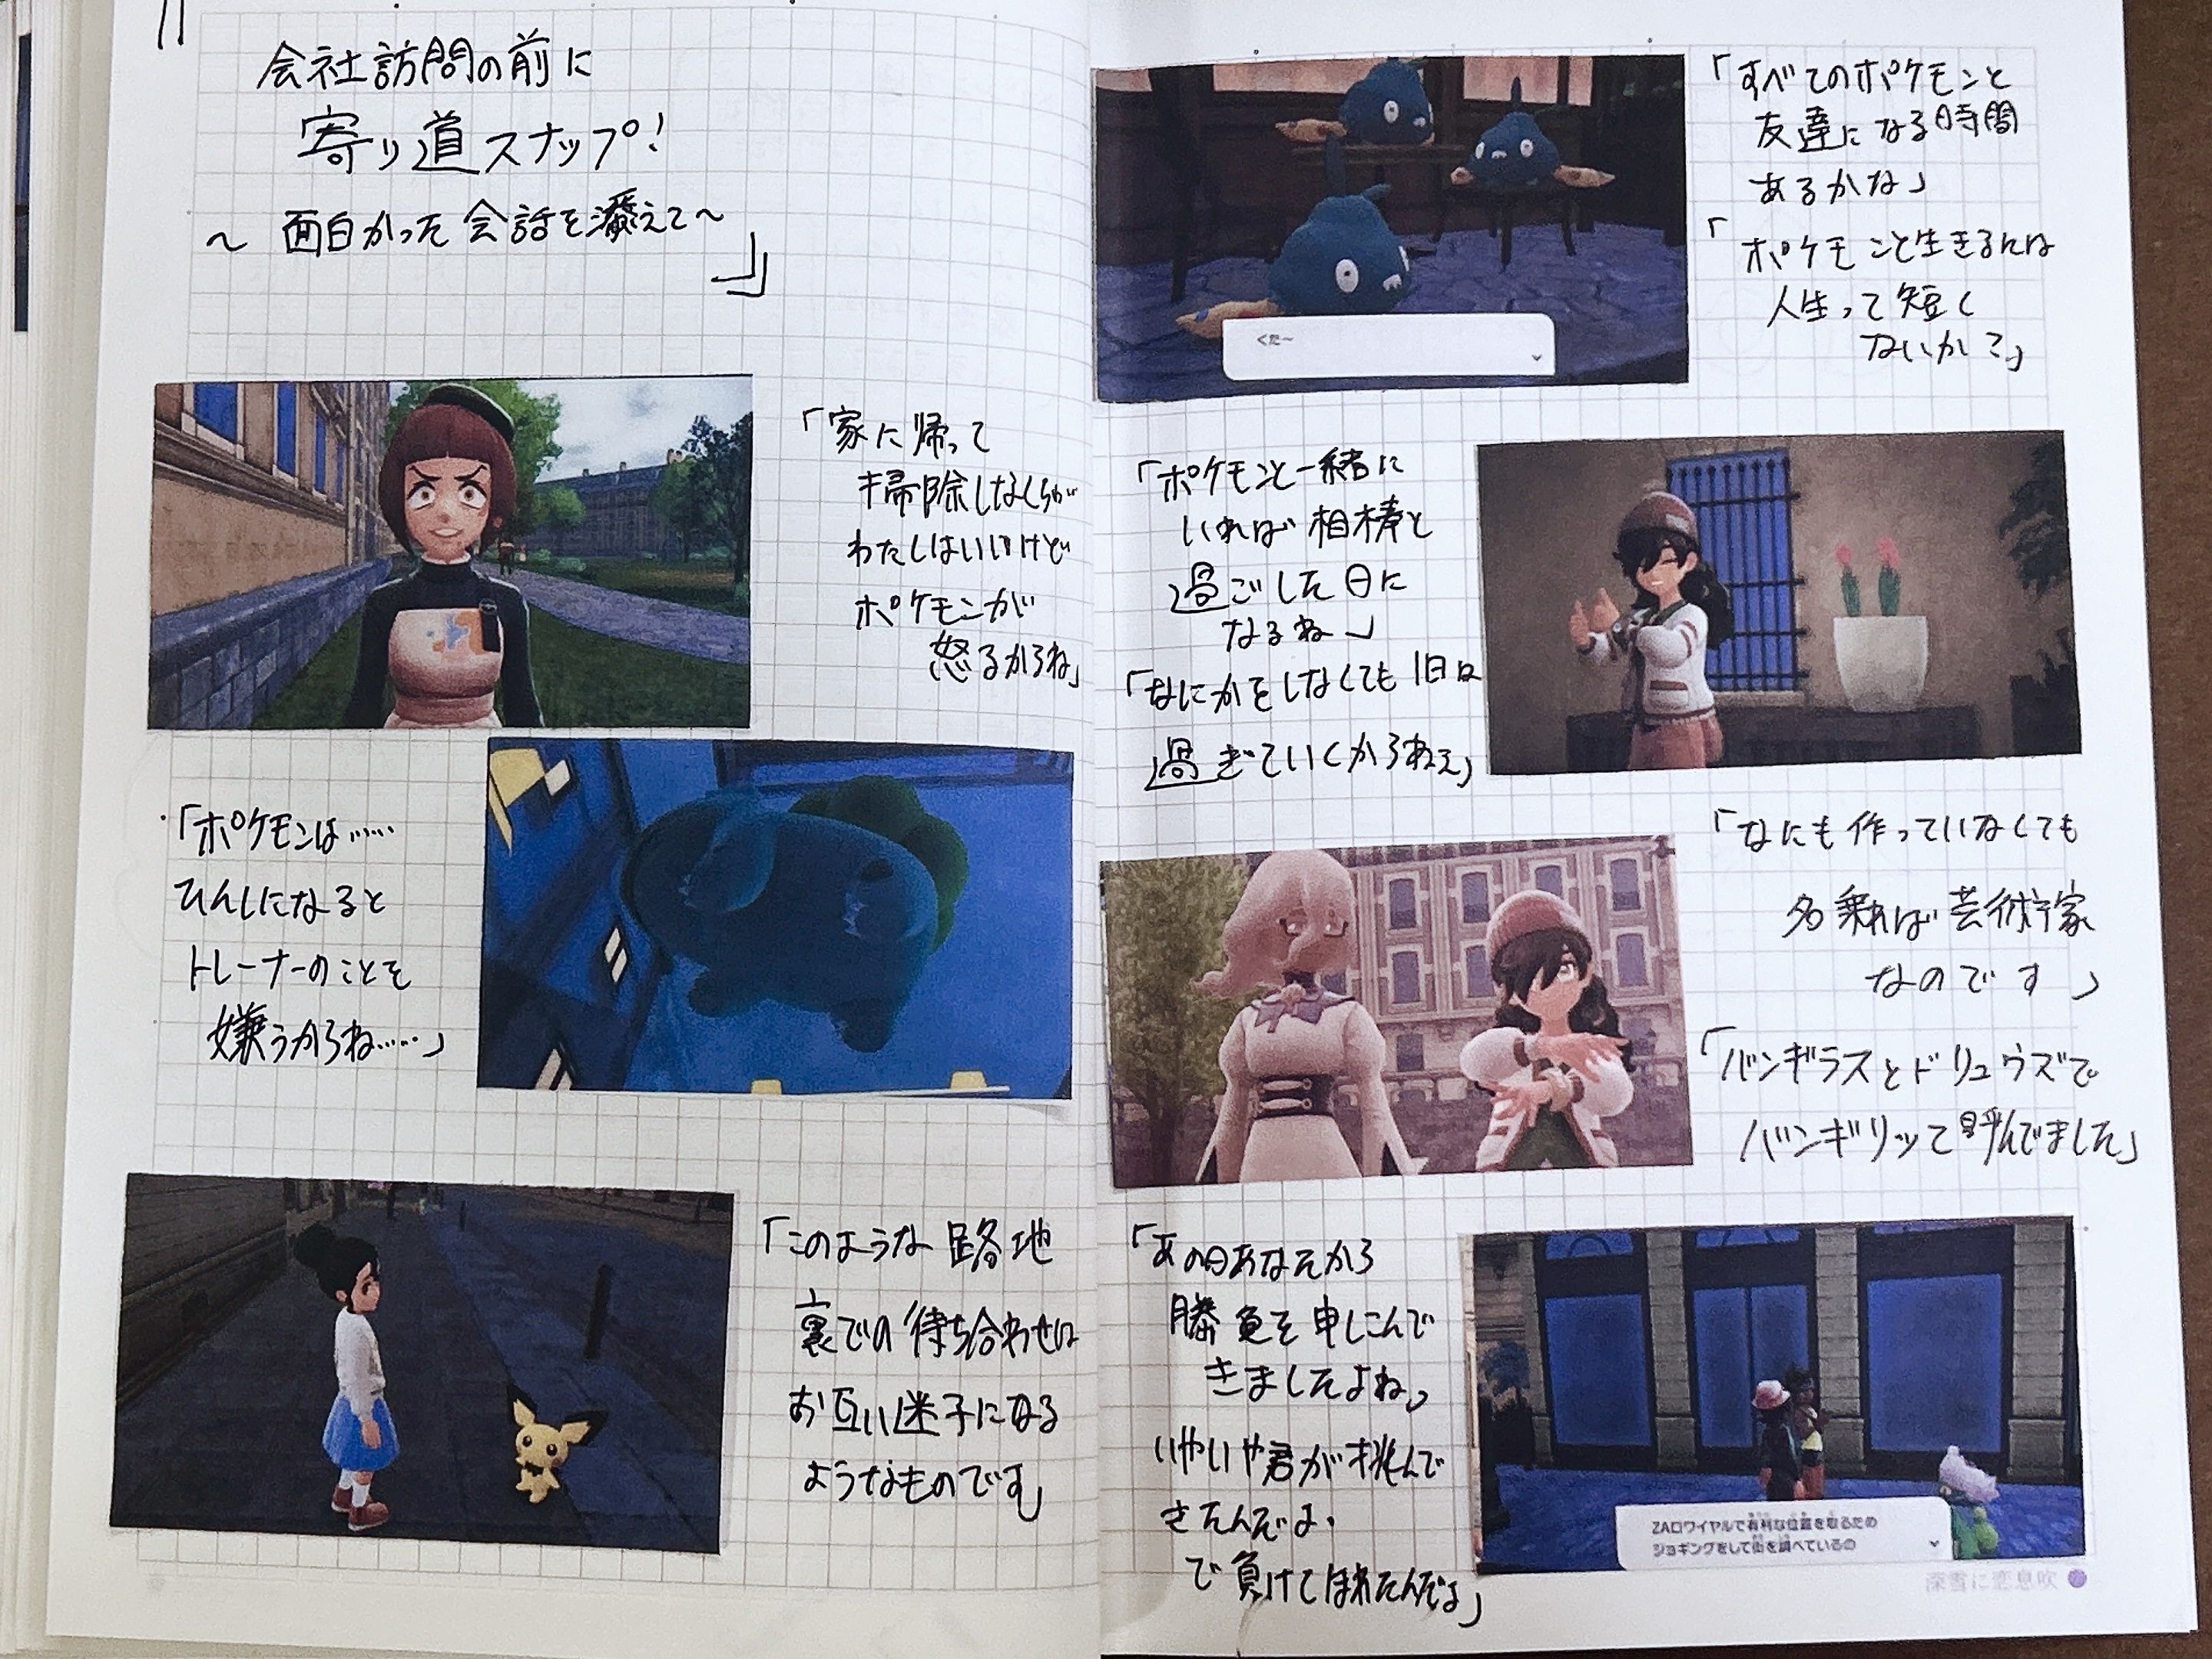 会社訪問の前に
寄り道スナップ!
～ 面白かった会話を添えて～
」
「家に帰って
掃除しなくちゃ
わたしはいいけど
ポケモンが
怒るからね」
「ポケモンは……
ひんしになると
トレーナーのことを
嫌うからね……」
「このような路地
裏での待ち合わせは
お互い迷子になる
ようなものです」
「すべてのポケモンと
友達になる時間
あるかな」
「ポケモンと生きるには
人生って短く
ないか?」
くだ～
「ポケモンと一緒に
いれば相棒と
過ごした日に
なるね」
「なにかをしなくても1日は
過ぎていくからねえ」
「なにも作っていなくても
名乗れば芸術家
なのです」
「バンギラスとドリュウズで
バンギリッて呼んでました」
「あの日あなたから
勝負を申しこんで
きましたよね」
いやいや君が挑んで
きたんだよ.
で負けてほれたんだよ」
ZAロワイヤルで有利な位置を取るため
ジョギングをして街を調べているの
深雪に恋息吹